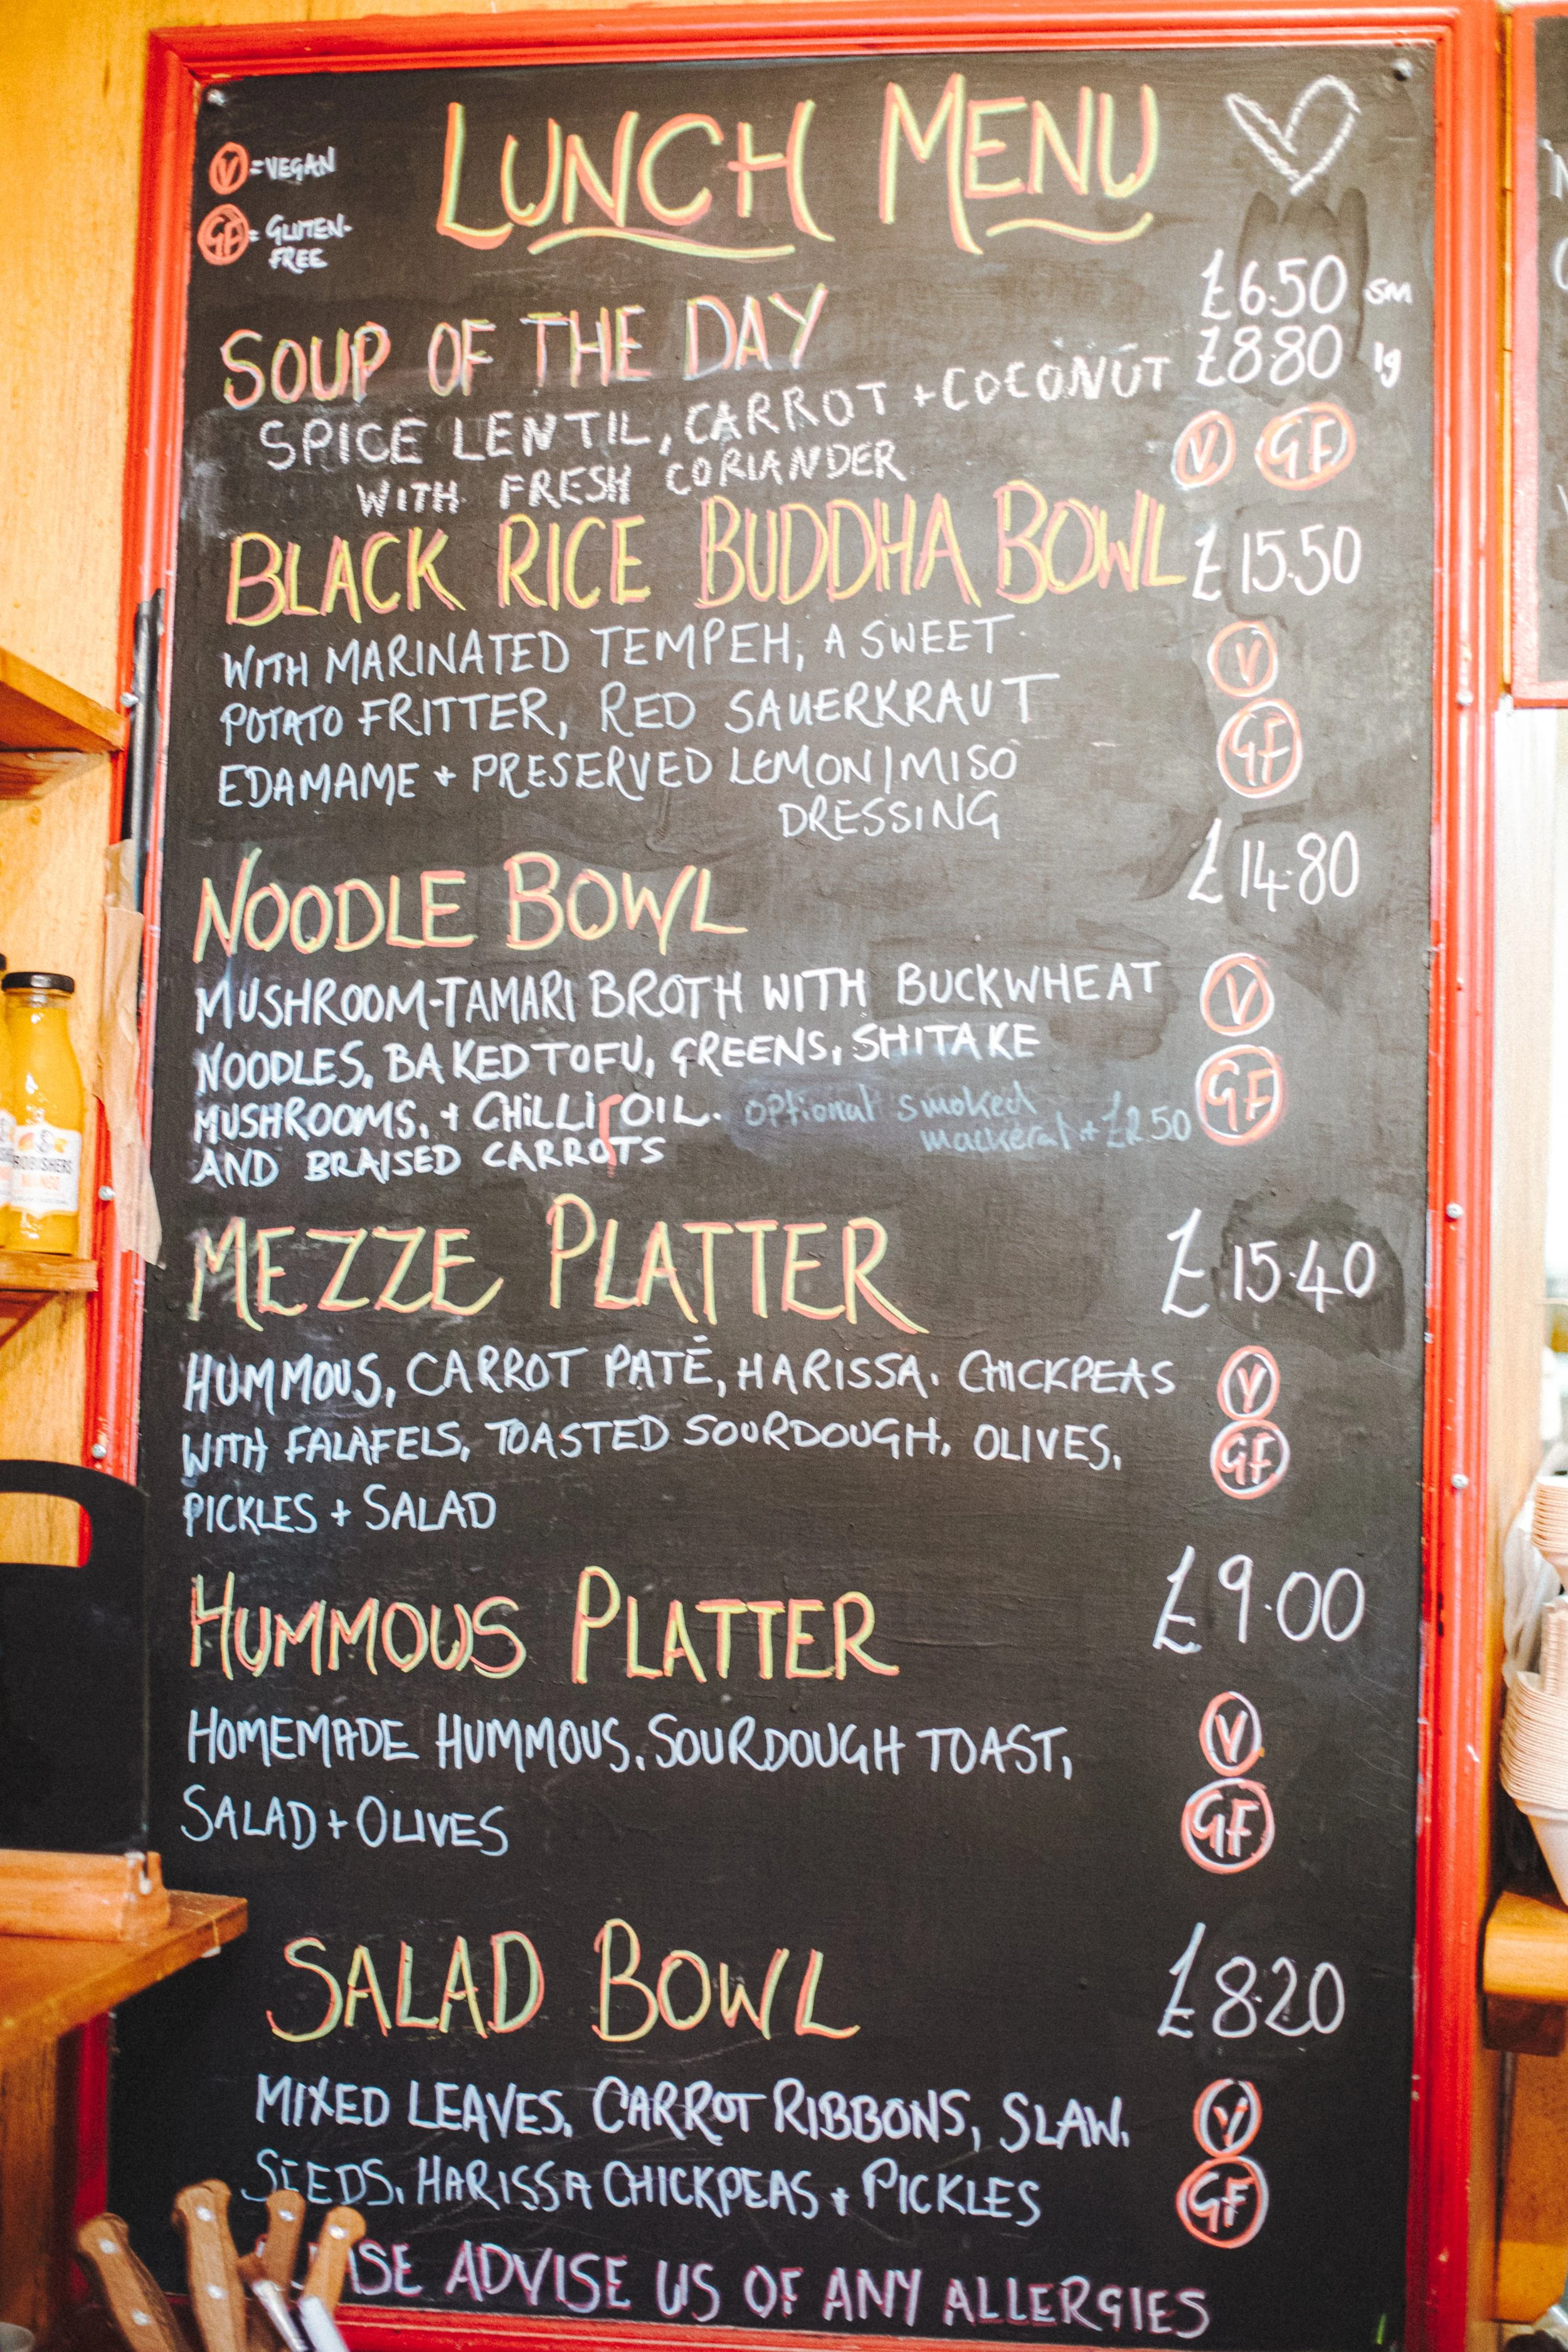 LUNCH MENU
V = VEGAN
GF = GLUTEN-
FREE
SOUP OF THE DAY £6.50 sm
£8.80 lg
SPICE LENTIL, CARROT + COCONUT
WITH FRESH CORIANDER
V GF
BLACK RICE BUDDHA BOWL £15.50
WITH MARINATED TEMPEH, A SWEET
POTATO FRITTER, RED SAUERKRAUT
EDAMAME + PRESERVED LEMON/MISO
DRESSING
V
GF
NOODLE BOWL £14.80
MUSHROOM-TAMARI BROTH WITH BUCKWHEAT
NOODLES, BAKED TOFU, GREENS, SHITAKE
MUSHROOMS, + CHILLI OIL. optional smoked
mackeral + £2.50
AND BRAISED CARROTS
V
GF
MEZZE PLATTER £15.40
HUMMOUS, CARROT PATÉ, HARISSA. CHICKPEAS
WITH FALAFELS, TOASTED SOURDOUGH, OLIVES,
PICKLES + SALAD
V
GF
HUMMOUS PLATTER £9.00
HOMEMADE HUMMOUS, SOURDOUGH TOAST,
SALAD + OLIVES
V
GF
SALAD BOWL £8.20
MIXED LEAVES, CARROT RIBBONS, SLAW,
SEEDS, HARISSA CHICKPEAS + PICKLES
V
GF
ADVISE US OF ANY ALLERGIES